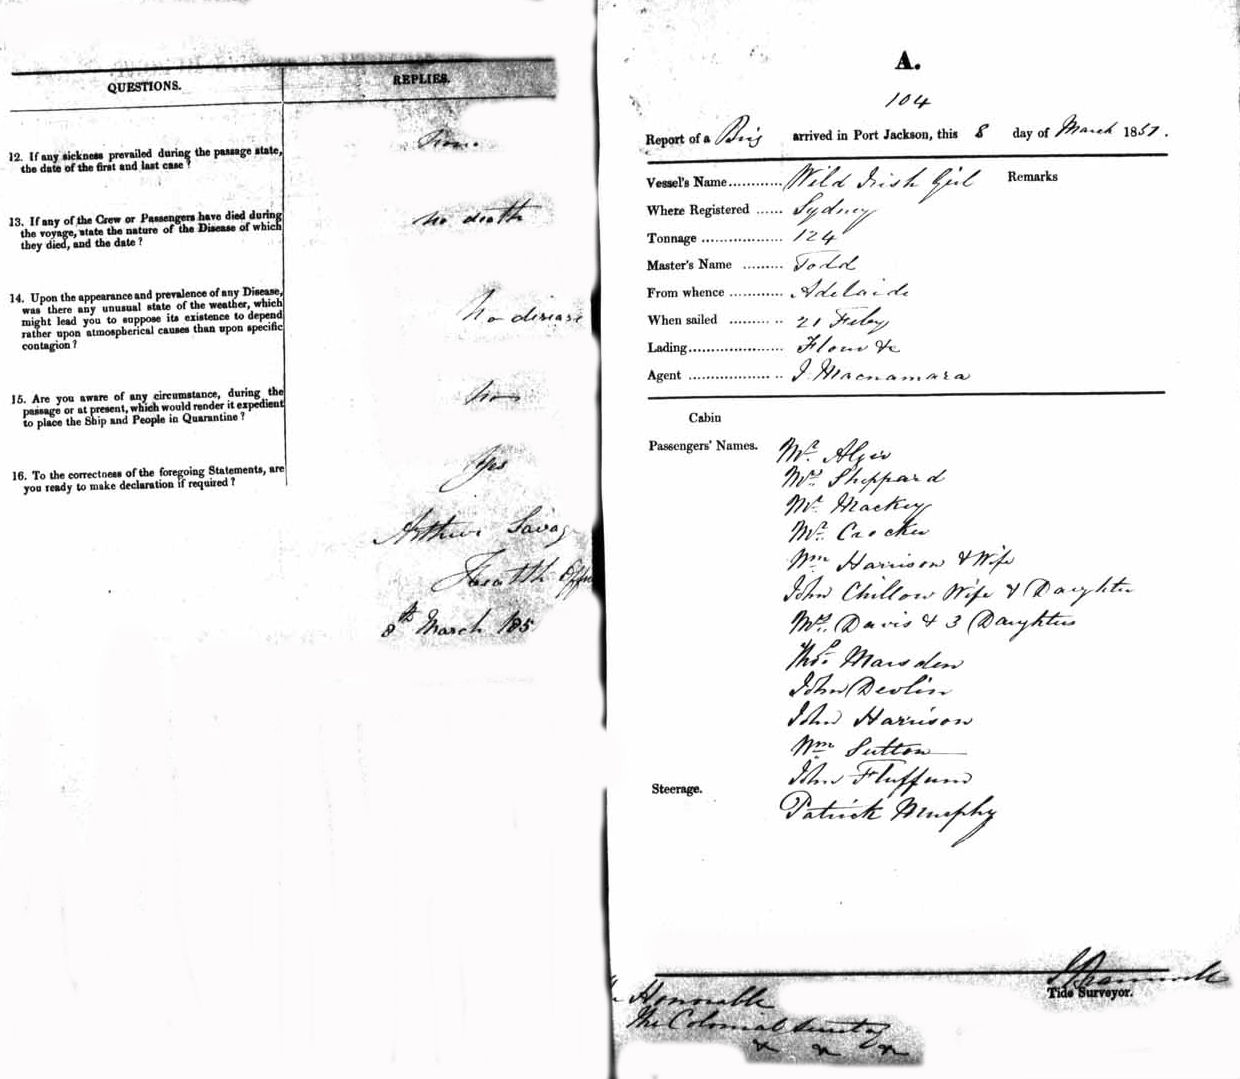 QUESTIONS.
REPLIES.
12. If any sickness prevailed during the passage state,
the date of the first and last case?
None.
13. If any of the Crew or Passengers have died during
the voyage, state the nature of the Disease of which
they died, and the date?
No death
14. Upon the appearance and prevalence of any Disease,
was there any unusual state of the weather, which
might lead you to suppose its existence to depend
rather upon atmospherical causes than upon specific
contagion?
No disease
15. Are you aware of any circumstance, during the
passage or at present, which would render it expedient
to place the Ship and People in Quarantine?
16. To the correctness of the foregoing Statements, are
you ready to make declaration if required?
Yes
Arthur Savag
Health Offi
8th March 185
A.
104
Report of a Brig arrived in Port Jackson, this 8 day of March 1851.
Vessel's Name............ Wild Irish Girl
Remarks
Where Registered ...... Sydney
Tonnage .................. 124
Master's Name ......... Todd
From whence ............ Adelaide
When sailed ......... .. 21 Feby
Lading..................... Flour &c
Agent .................. .. J Macnamara
Cabin
Passengers' Names.
Mr. Alger
Mrs. Sheppard
Mr. Mackey
Mr. Crocker
Wm Harrison & Wife
John Chillow Wife & Daughter
Mrs. Davis & 3 Daughters
Thos. Marsden
John Devlin
John Harrison
Wm Sutton
John
Steerage.
Patrick Murphy
Tide Surveyor.
Honorable
The Colonial Secretary